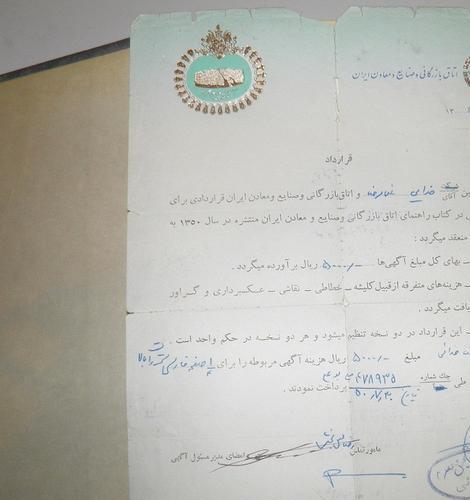 اتاق بازرگانی و صنایع و معادن ایران
۱۳
قرارداد
ین آقای خدایی غلامرضا و اتاق بازرگانی وصنایع ومعادن ایران قراردادی برای
در کتاب راهنمای اتاق بازرگانی وصنایع و معادن ایران منتشره در سال ۱۳۵۰ به
منعقد میگردد :
ـ بهای کل مبلغ آگهی‌ها ۵۰۰۰/- ریال برآورده میگردد .
ـ هزینه‌های متفرقه از قبیل کلیشه ـ خطاطی ـ نقاشی ـ عکسبرداری و گراور
یافت میگردد .
ـ این قرارداد در دو نسخه تنظیم میشود و هر دو نسخه در حکم واحد است .
خدائی مبلغ ۵۰۰۰/- ریال هزینه آگهی مربوطه را برای صفحه فارسی
طی چك شماره ۴۷۸۹۳۵ پرداخت نمودند .
مأمور امضای مدیر مسئول آگهی